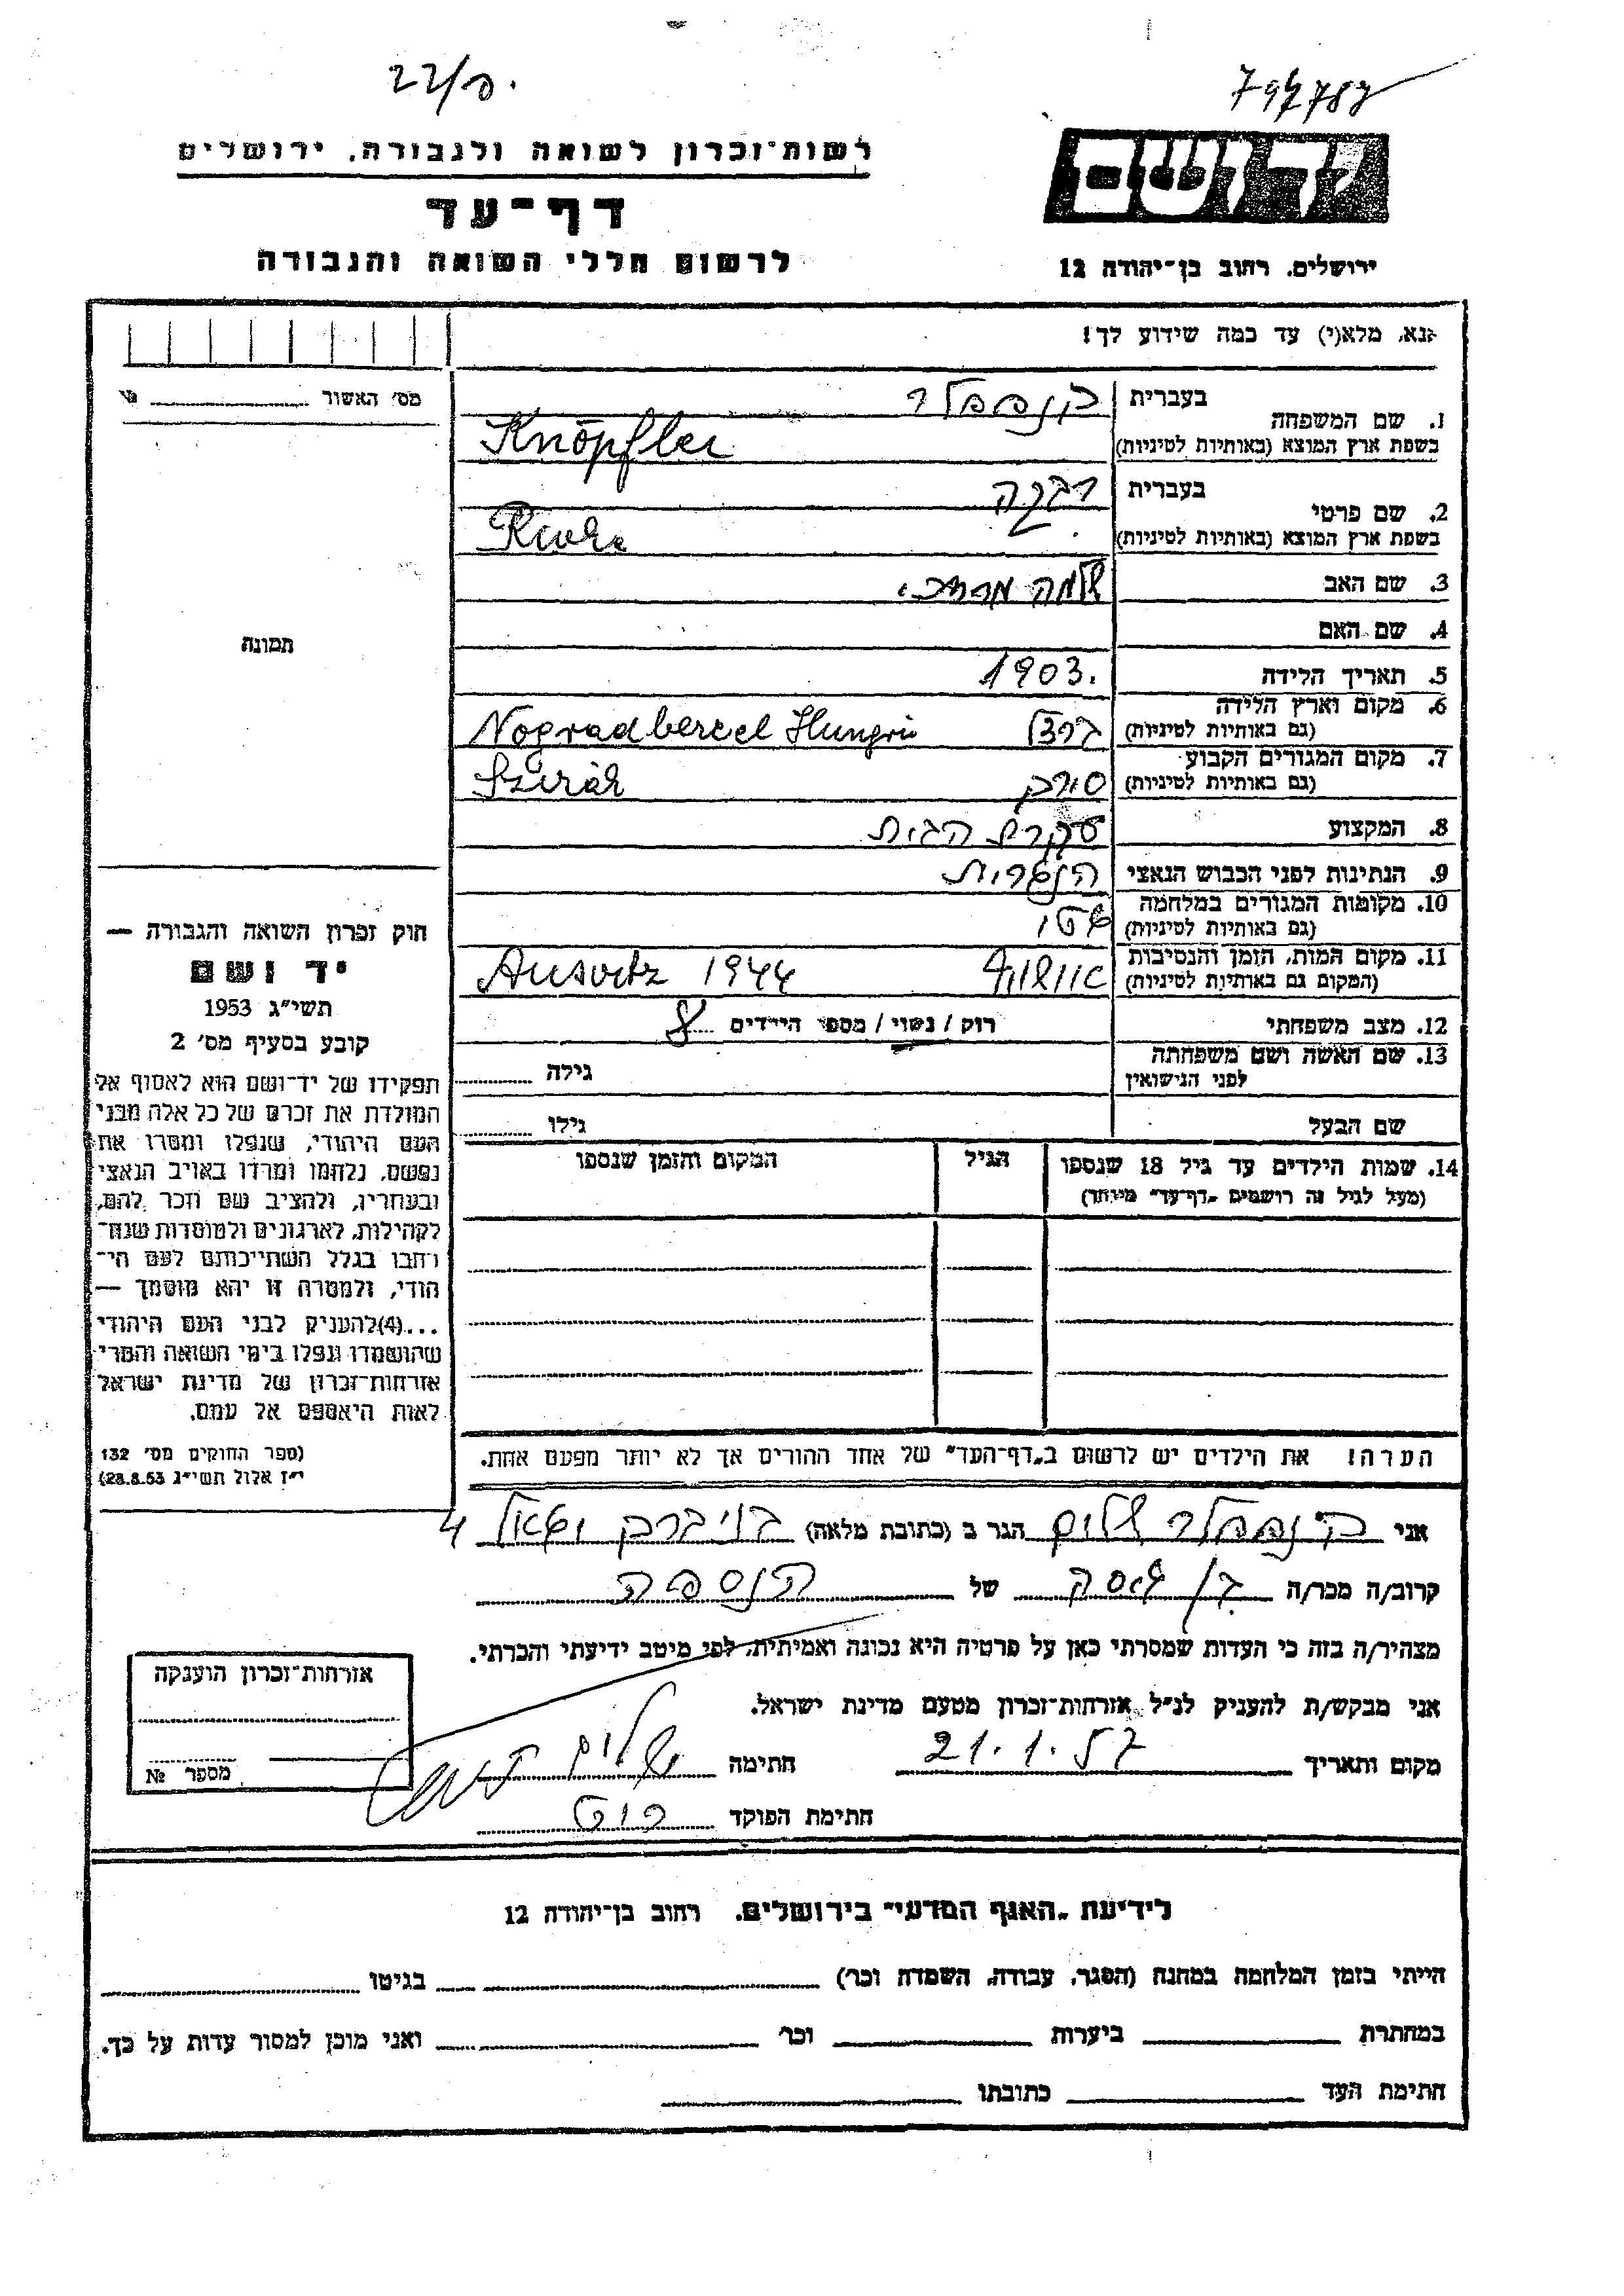 22/ פ.
797787
רשות־זכרון לשואה ולגבורה, ירושלים
דף־עד
לרשום חללי השואה והגבורה
יד ושם
ירושלים, רחוב בן־יהודה 12
נא, מלא(י) עד כמה שידוע לך!
מס׳ האשור
1. שם המשפחה
בעברית קנפפלר
בשפת ארץ המוצא (באותיות לטיניות) Knöpfler
2. שם פרטי
בעברית רבקה
בשפת ארץ המוצא (באותיות לטיניות)
3. שם האב שלמה מרדכי
4. שם האם
5. תאריך הלידה 1903.
6. מקום וארץ הלידה
(גם באותיות לטיניות) ברצל Nogradbercel
7. מקום המגורים הקבוע
(גם באותיות לטיניות) סירק Szirák
8. המקצוע עקרת הבית
9. הנתינות לפני הכבוש הנאצי הונגרית
10. מקומות המגורים במלחמה
(גם באותיות לטיניות)
11. מקום המות, הזמן והנסיבות
(המקום גם באותיות לטיניות) אושויץ Ausvitz 1944
12. מצב משפחתי רוק / נשוי / מספר הילדים 8
13. שם האשה ושם משפחתה
לפני הנישואין
גילה
שם הבעל
גילו
14. שמות הילדים עד גיל 18 שנספו
(מעל לגיל זה רושמים „דף־עד״ מיוחד)
הגיל
המקום והזמן שנספו
הערה! את הילדים יש לרשום ב„דף־העד״ של אחד ההורים אך לא יותר מפעם אחת.
תמונה
חוק זכרון השואה והגבורה —
יד ושם
תשי״ג 1953
קובע בסעיף מס׳ 2
תפקידו של יד־ושם הוא לאסוף אל
המולדת את זכרם של כל אלה מבני
העם היהודי, שנפלו ומסרו את
נפשם, נלחמו ומרדו באויב הנאצי
ובעוזריו, ולהציב שם וזכר להם,
לקהילות, לארגונים ולמוסדות שנח־
רבו בגלל השתייכותם לעם הי־
הודי, ולמטרה זו יהא מוסמך —
...(4) להעניק לבני העם היהודי
שהושמדו ונפלו בימי השואה והמרי
אזרחות־זכרון של מדינת ישראל
לאות היאספם אל עמם.
(ספר החוקים מס׳ 132
י״ז אלול תשי״ג 28.8.53)
אני קנפפלר שלום הגר ב (כתובת מלאה) בני ברק 4
קרוב/ה מכר/ה בן של הנספה
מצהיר/ה בזה כי העדות שמסרתי כאן על פרטיה היא נכונה ואמיתית, לפי מיטב ידיעתי והכרתי.
אני מבקש/ת להעניק לנ״ל אזרחות־זכרון מטעם מדינת ישראל.
מקום ותאריך 21.1.57 חתימה שלום
חתימת הפוקד
אזרחות־זכרון הוענקה
מספר №
לידיעת „האגף המדעי״ בירושלים, רחוב בן־יהודה 12
הייתי בזמן המלחמה במחנה (הסגר, עבודה, השמדה וכר׳) בגיטו
במחתרת ביערות וכר׳ ואני מוכן למסור עדות על כך.
חתימת העד כתובתו